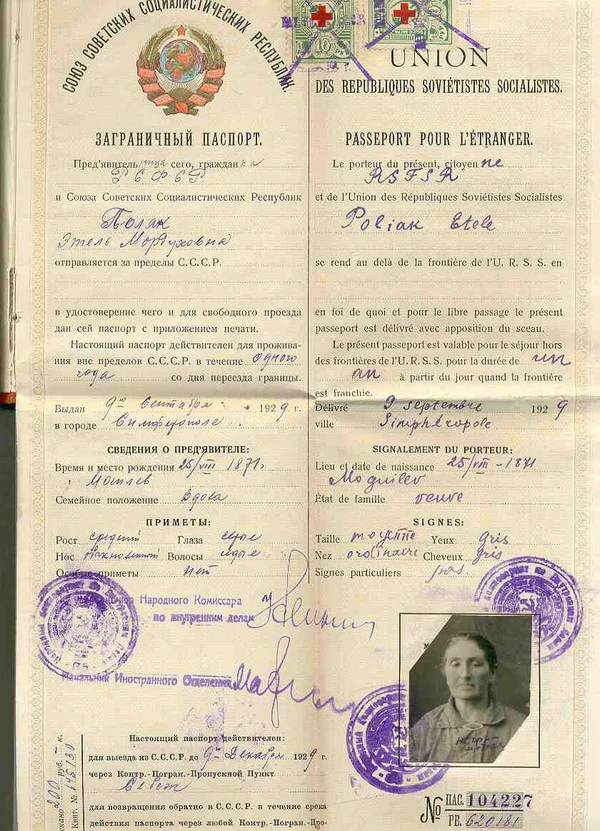 СОЮЗ СОВЕТСКИХ СОЦИАЛИСТИЧЕСКИХ РЕСПУБЛИК.
ЗАГРАНИЧНЫЙ ПАСПОРТ.
Пред'явительница сего, гражданка
РСФСР
и Союза Советских Социалистических Республик
Поляк
Этель Мордуховна
отправляется за пределы С.С.С.Р.
в удостоверение чего и для свободного проезда
дан сей паспорт с приложением печати.
Настоящий паспорт действителен для прожива-
ния вне пределов С.С.С.Р. в течение одного
года со дня переезда границы.
Выдан 9го Сентября 1929 г.
в городе Симферополе
СВЕДЕНИЯ О ПРЕД'ЯВИТЕЛЕ:
Время и место рождения 25/VIII 1871г.
Могилев
Семейное положение вдова
ПРИМЕТЫ:
Рост средний Глаза серые
Нос обыкновенный Волосы седые
Особые приметы нет
Народного Комиссара
по внутренним делам
Начальник Иностранного Отделения
Настоящий паспорт действителен:
для выезда из С.С.С.Р. до 9го Декабря 1929 г.
через Контр.-Погран.-Пропускной Пункт
для возвращения обратно в С.С.С.Р. в течение срока
действия паспорта через любой Контр.-Погран.-Про-
10
UNION
DES REPUBLIQUES SOVIÉTISTES SOCIALISTES.
PASSEPORT POUR L'ÉTRANGER.
Le porteur du présent, citoyenne
RSFSR
et de l'Union des Républiques Soviétistes Socialistes
Poliak Etele
se rend au delà de la frontière de l'U. R. S. S. en
en foi de quoi et pour le libre passage le présent
passeport est délivré avec apposition du sceau.
Le présent passeport est valable pour le séjour hors
des frontières de l'U. R. S. S. pour la durée de un
an à partir du jour quand la frontière
est franchie.
Délivré 9 septembre 1929
ville Simphéropole
SIGNALEMENT DU PORTEUR:
Lieu et date de naissance 25/VIII-1871
Moguilev
État de famille veuve
SIGNES:
Taille moyenne Yeux gris
Nez ordinaire Cheveux gris
Signes particuliers pas.
№ ПАС. 104227
РЕ. 620181